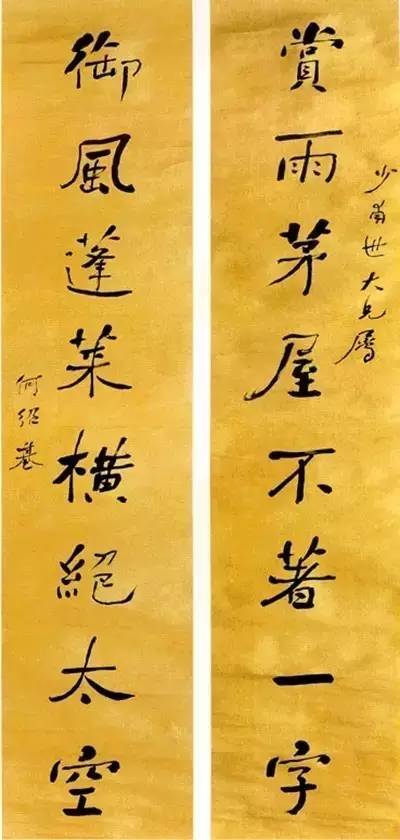 賞雨茅屋不著一字
少甫世大兄屬
御風蓬萊橫絕太空
何紹基